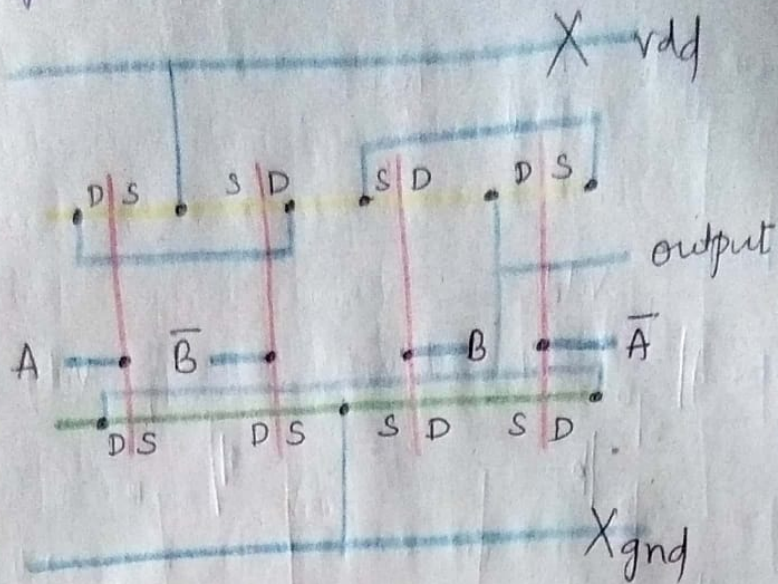 X vdd
D S S D S D D S
output
A B̅ B A̅
D S D S S D S D
X gnd